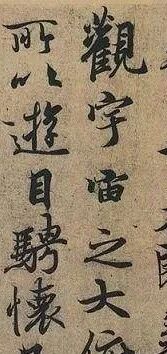 觀宇宙之大
所以遊目騁懷